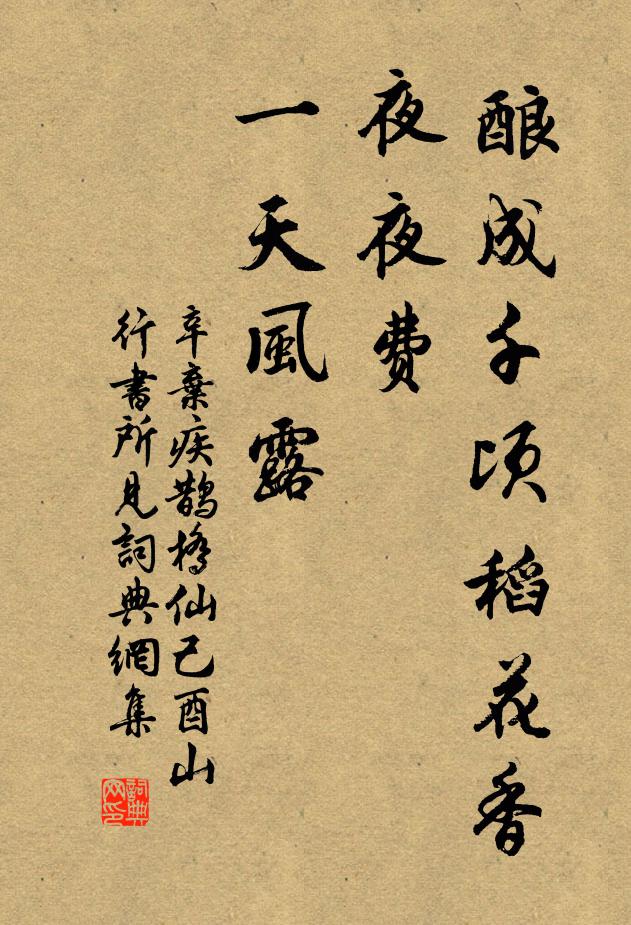 酿成千顷稻花香
夜夜费
一天風露
辛棄疾鵲橋仙己酉山
行書所見詞典網集
詞典
网印